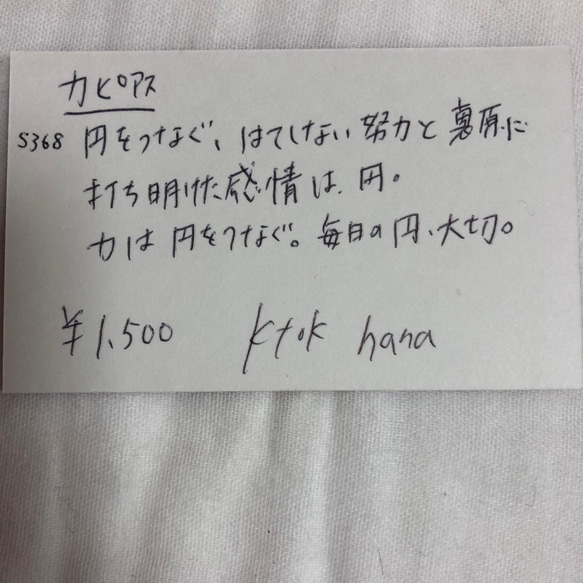 力ピアス
S368 円をつなぐ、はてしない努力と裏原に
打ち明けた感情は、円。
力は円をつなぐ。毎日の円、大切。
¥1,500 ktok hana